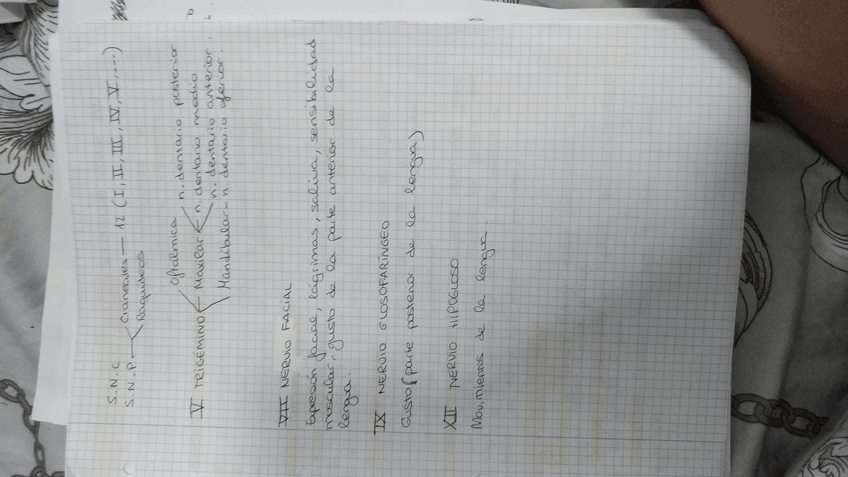 S.N.C
S.N.P Craneales — 12 (I, II, III, IV, V, ...)
Raquídeos
V TRIGÉMINO Oftálmica
Maxilar n. dentario posterior
n. dentario medio
n. dentario anterior
Mandibular - n. dentario
VII NERVIO FACIAL
Expresión facial, lágrimas, saliva, sensibilidad
muscular, gusto de la parte anterior de la
lengua.
IX NERVIO GLOSOFARÍNGEO
Gusto (parte posterior de la lengua)
XII NERVIO HIPOGLOSO
Movimientos de la lengua.